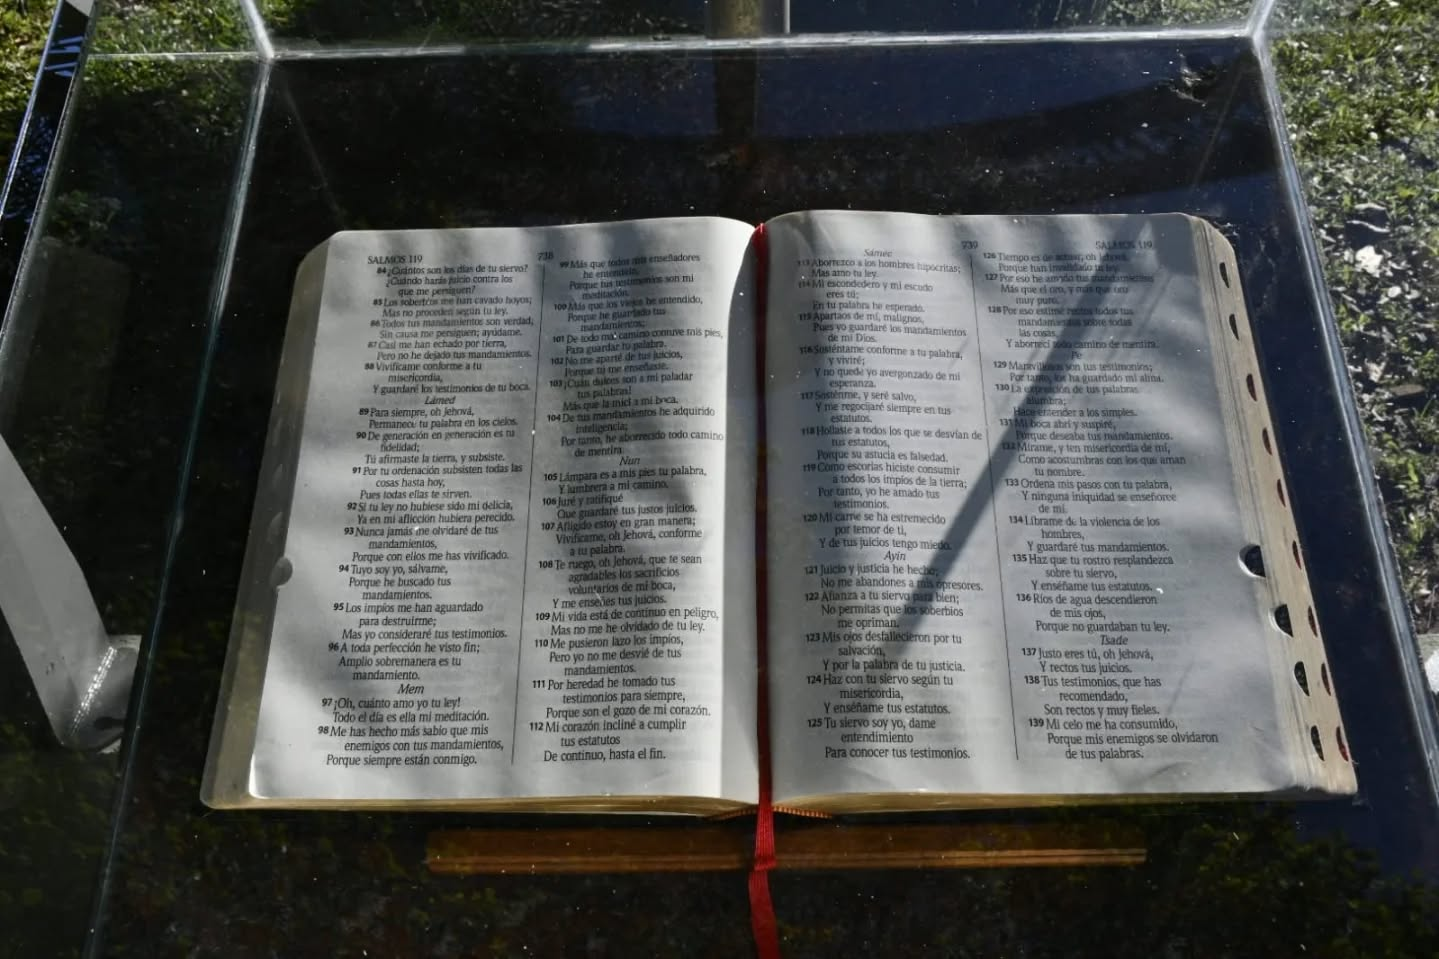 SALMOS 119
738
84 ¿Cuántos son los días de tu siervo?
¿Cuándo harás juicio contra los
que me persiguen?
85 Los soberbios me han cavado hoyos;
Mas no proceden según tu ley.
86 Todos tus mandamientos son verdad;
Sin causa me persiguen; ayúdame.
87 Casi me han echado por tierra,
Pero no he dejado tus mandamientos.
88 Vivifícame conforme a tu
misericordia,
Y guardaré los testimonios de tu boca.
Lámed
89 Para siempre, oh Jehová,
Permanece tu palabra en los cielos.
90 De generación en generación es tu
fidelidad;
Tú afirmaste la tierra, y subsiste.
91 Por tu ordenación subsisten todas las
cosas hasta hoy,
Pues todas ellas te sirven.
92 Si tu ley no hubiese sido mi delicia,
Ya en mi aflicción hubiera perecido.
93 Nunca jamás me olvidaré de tus
mandamientos,
Porque con ellos me has vivificado.
94 Tuyo soy yo, sálvame,
Porque he buscado tus
mandamientos.
95 Los impíos me han aguardado
para destruirme;
Mas yo consideraré tus testimonios.
96 A toda perfección he visto fin;
Amplio sobremanera es tu
mandamiento.
Mem
97 ¡Oh, cuánto amo yo tu ley!
Todo el día es ella mi meditación.
98 Me has hecho más sabio que mis
enemigos con tus mandamientos,
Porque siempre están conmigo.
99 Más que todos mis enseñadores
he entendido,
Porque tus testimonios son mi
meditación.
100 Más que los viejos he entendido,
Porque he guardado tus
mandamientos;
101 De todo mal camino contuve mis pies,
Para guardar tu palabra.
102 No me aparté de tus juicios,
Porque tú me enseñaste.
103 ¡Cuán dulces son a mi paladar
tus palabras!
Más que la miel a mi boca.
104 De tus mandamientos he adquirido
inteligencia;
Por tanto, he aborrecido todo camino
de mentira.
Nun
105 Lámpara es a mis pies tu palabra,
Y lumbrera a mi camino.
106 Juré y ratifiqué
Que guardaré tus justos juicios.
107 Afligido estoy en gran manera;
Vivifícame, oh Jehová, conforme
a tu palabra.
108 Te ruego, oh Jehová, que te sean
agradables los sacrificios
voluntarios de mi boca,
Y me enseñes tus juicios.
109 Mi vida está de continuo en peligro,
Mas no me he olvidado de tu ley.
110 Me pusieron lazo los impíos,
Pero yo no me desvié de tus
mandamientos.
111 Por heredad he tomado tus
testimonios para siempre,
Porque son el gozo de mi corazón.
112 Mi corazón incliné a cumplir
tus estatutos
De continuo, hasta el fin.
739
SALMOS 119
Sámec
113 Aborrezco a los hombres hipócritas;
Mas amo tu ley.
114 Mi escondedero y mi escudo
eres tú;
En tu palabra he esperado.
115 Apartaos de mí, malignos,
Pues yo guardaré los mandamientos
de mi Dios.
116 Susténtame conforme a tu palabra,
y viviré;
Y no quede yo avergonzado de mi
esperanza.
117 Sosténme, y seré salvo,
Y me regocijaré siempre en tus
estatutos.
118 Hollaste a todos los que se desvían de
tus estatutos,
Porque su astucia es falsedad.
119 Como escorias hiciste consumir
a todos los impíos de la tierra;
Por tanto, yo he amado tus
testimonios.
120 Mi carne se ha estremecido
por temor de ti,
Y de tus juicios tengo miedo.
Ayin
121 Juicio y justicia he hecho;
No me abandones a mis opresores.
122 Afianza a tu siervo para bien;
No permitas que los soberbios
me opriman.
123 Mis ojos desfallecieron por tu
salvación,
Y por la palabra de tu justicia.
124 Haz con tu siervo según tu
misericordia,
Y enséñame tus estatutos.
125 Tu siervo soy yo, dame
entendimiento
Para conocer tus testimonios.
126 Tiempo es de actuar, oh Jehová,
Porque han invalidado tu ley.
127 Por eso he amado tus mandamientos
Más que el oro, y más que oro
muy puro.
128 Por eso estimé rectos todos tus
mandamientos sobre todas
las cosas,
Y aborrecí todo camino de mentira.
Pe
129 Maravillosos son tus testimonios;
Por tanto, los ha guardado mi alma.
130 La exposición de tus palabras
alumbra;
Hace entender a los simples.
131 Mi boca abrí y suspiré,
Porque deseaba tus mandamientos.
132 Mírame, y ten misericordia de mí,
Como acostumbras con los que aman
tu nombre.
133 Ordena mis pasos con tu palabra,
Y ninguna iniquidad se enseñoree
de mí.
134 Líbrame de la violencia de los
hombres,
Y guardaré tus mandamientos.
135 Haz que tu rostro resplandezca
sobre tu siervo,
Y enséñame tus estatutos.
136 Ríos de agua descendieron
de mis ojos,
Porque no guardaban tu ley.
Tsade
137 Justo eres tú, oh Jehová,
Y rectos tus juicios.
138 Tus testimonios, que has
recomendado,
Son rectos y muy fieles.
139 Mi celo me ha consumido,
Porque mis enemigos se olvidaron
de tus palabras.